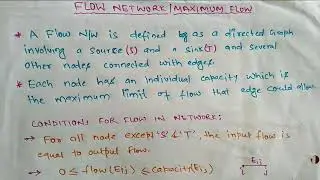 FLOW NETWORK/MAXIMUM FLOW
* A Flow N/W is defined by as a directed Graph
involving a source(S) and a sink(T) and several
other nodes connected with edges.
* Each node has an individual capacity which is
the maximum limit of flow that edge could allow.
CONDITIONS FOR FLOW IN NETWORK:
→ For all node except 'S' & 'T', the input flow is
equal to output flow.
→ 0 ≤ flow(Ei,j) ≤ capacity(Ei,j)
Ei,j
i j